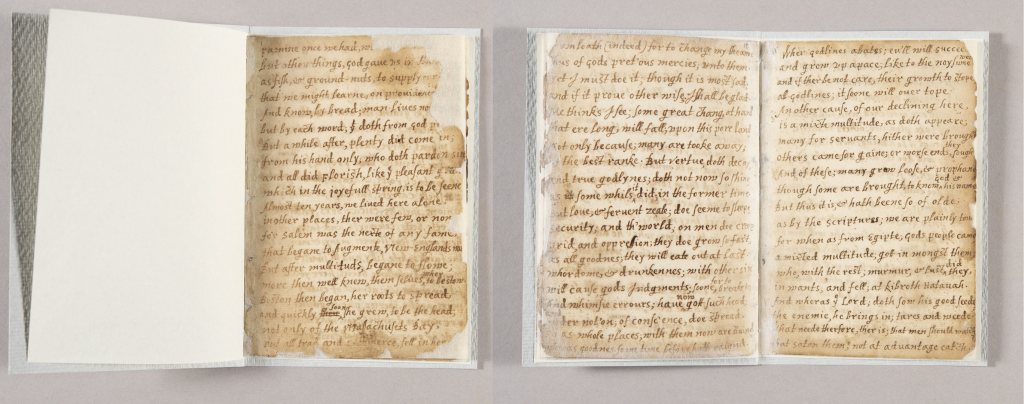 famine once we had, w
But other things, god gave us in
as fish, & ground-nuts, to supply
that we might learne, on providenc
And know, by bread; man lives no
but by each word; ẏ doth from god p
But a while after, plenty did come
From his hand only, who doth pardon sin
and all did florish, like ẏ pleasant g
which in the joyefull spring, is to be seene
Almost ten years, we lived here alone
in other places, ther were few, or non
for Salem was the nexte of any fame
that began to Augmente, New-Englands
but after multituds, began to flowe;
more then well knew, themselves, to bestow
they
Boston then began, her roots to spread
and quickly soone she grew, to be the head;
not only of the Masachusets Bay;
but all trad and commerce, fell in her
loath (indeed) for to change my theam
us of gods pretious mercies, unto them
yet I must doe it; though it is most sad,
and if it prove other wise, I shall be glad
me thinks I see; some great chang, at hand
that ere long, will fall, upon this pore land
not only because, many are tooke away,
the best ranke. But vertue, doth deca
and true godlynes; doth not now so shine
as some whils, it did; in the former time
but love, & fervent zeale; doe seeme to sleep
security, and th'world; on men doe
and oppresion; they doe grow so fast,
as all goodnes; they will eate out at last
whordome, & drunkennes; with other sin
will cause gods Judgments; soone, for to break in
And whimsie errours; have now got such head
under notion, of conscience, doe spread.
as whole places, with them now are
goodnes some time before hath
When godlines abates; evill will succee
and grow up apace, like to the noysome
and if ther be not care, their growth to stope
all godlines; it soone will over tope
Another cause, of our declining here,
is a mixte multitude, as doth appeare;
many for servants, hither were brough
others came for gaine; or worse ends, they sough
And of these; many grow loose, & prophan
though some are brought, to know, god & his name
But thus it is, & hath beene so of olde
as by the scriptures; we are plainly
for when as from Egipte, Gods people came
a mixted multitude; got in mongst them
who, with the rest; murmur, & lust, did they,
in wants, and fell, at kibroth Hatavah.
And wheras ẏ Lord; doth sow his good seede
the enemie, he brings in; tares and weede
that neede therfore, ther is; that men should
that satan them; not at advantage catch